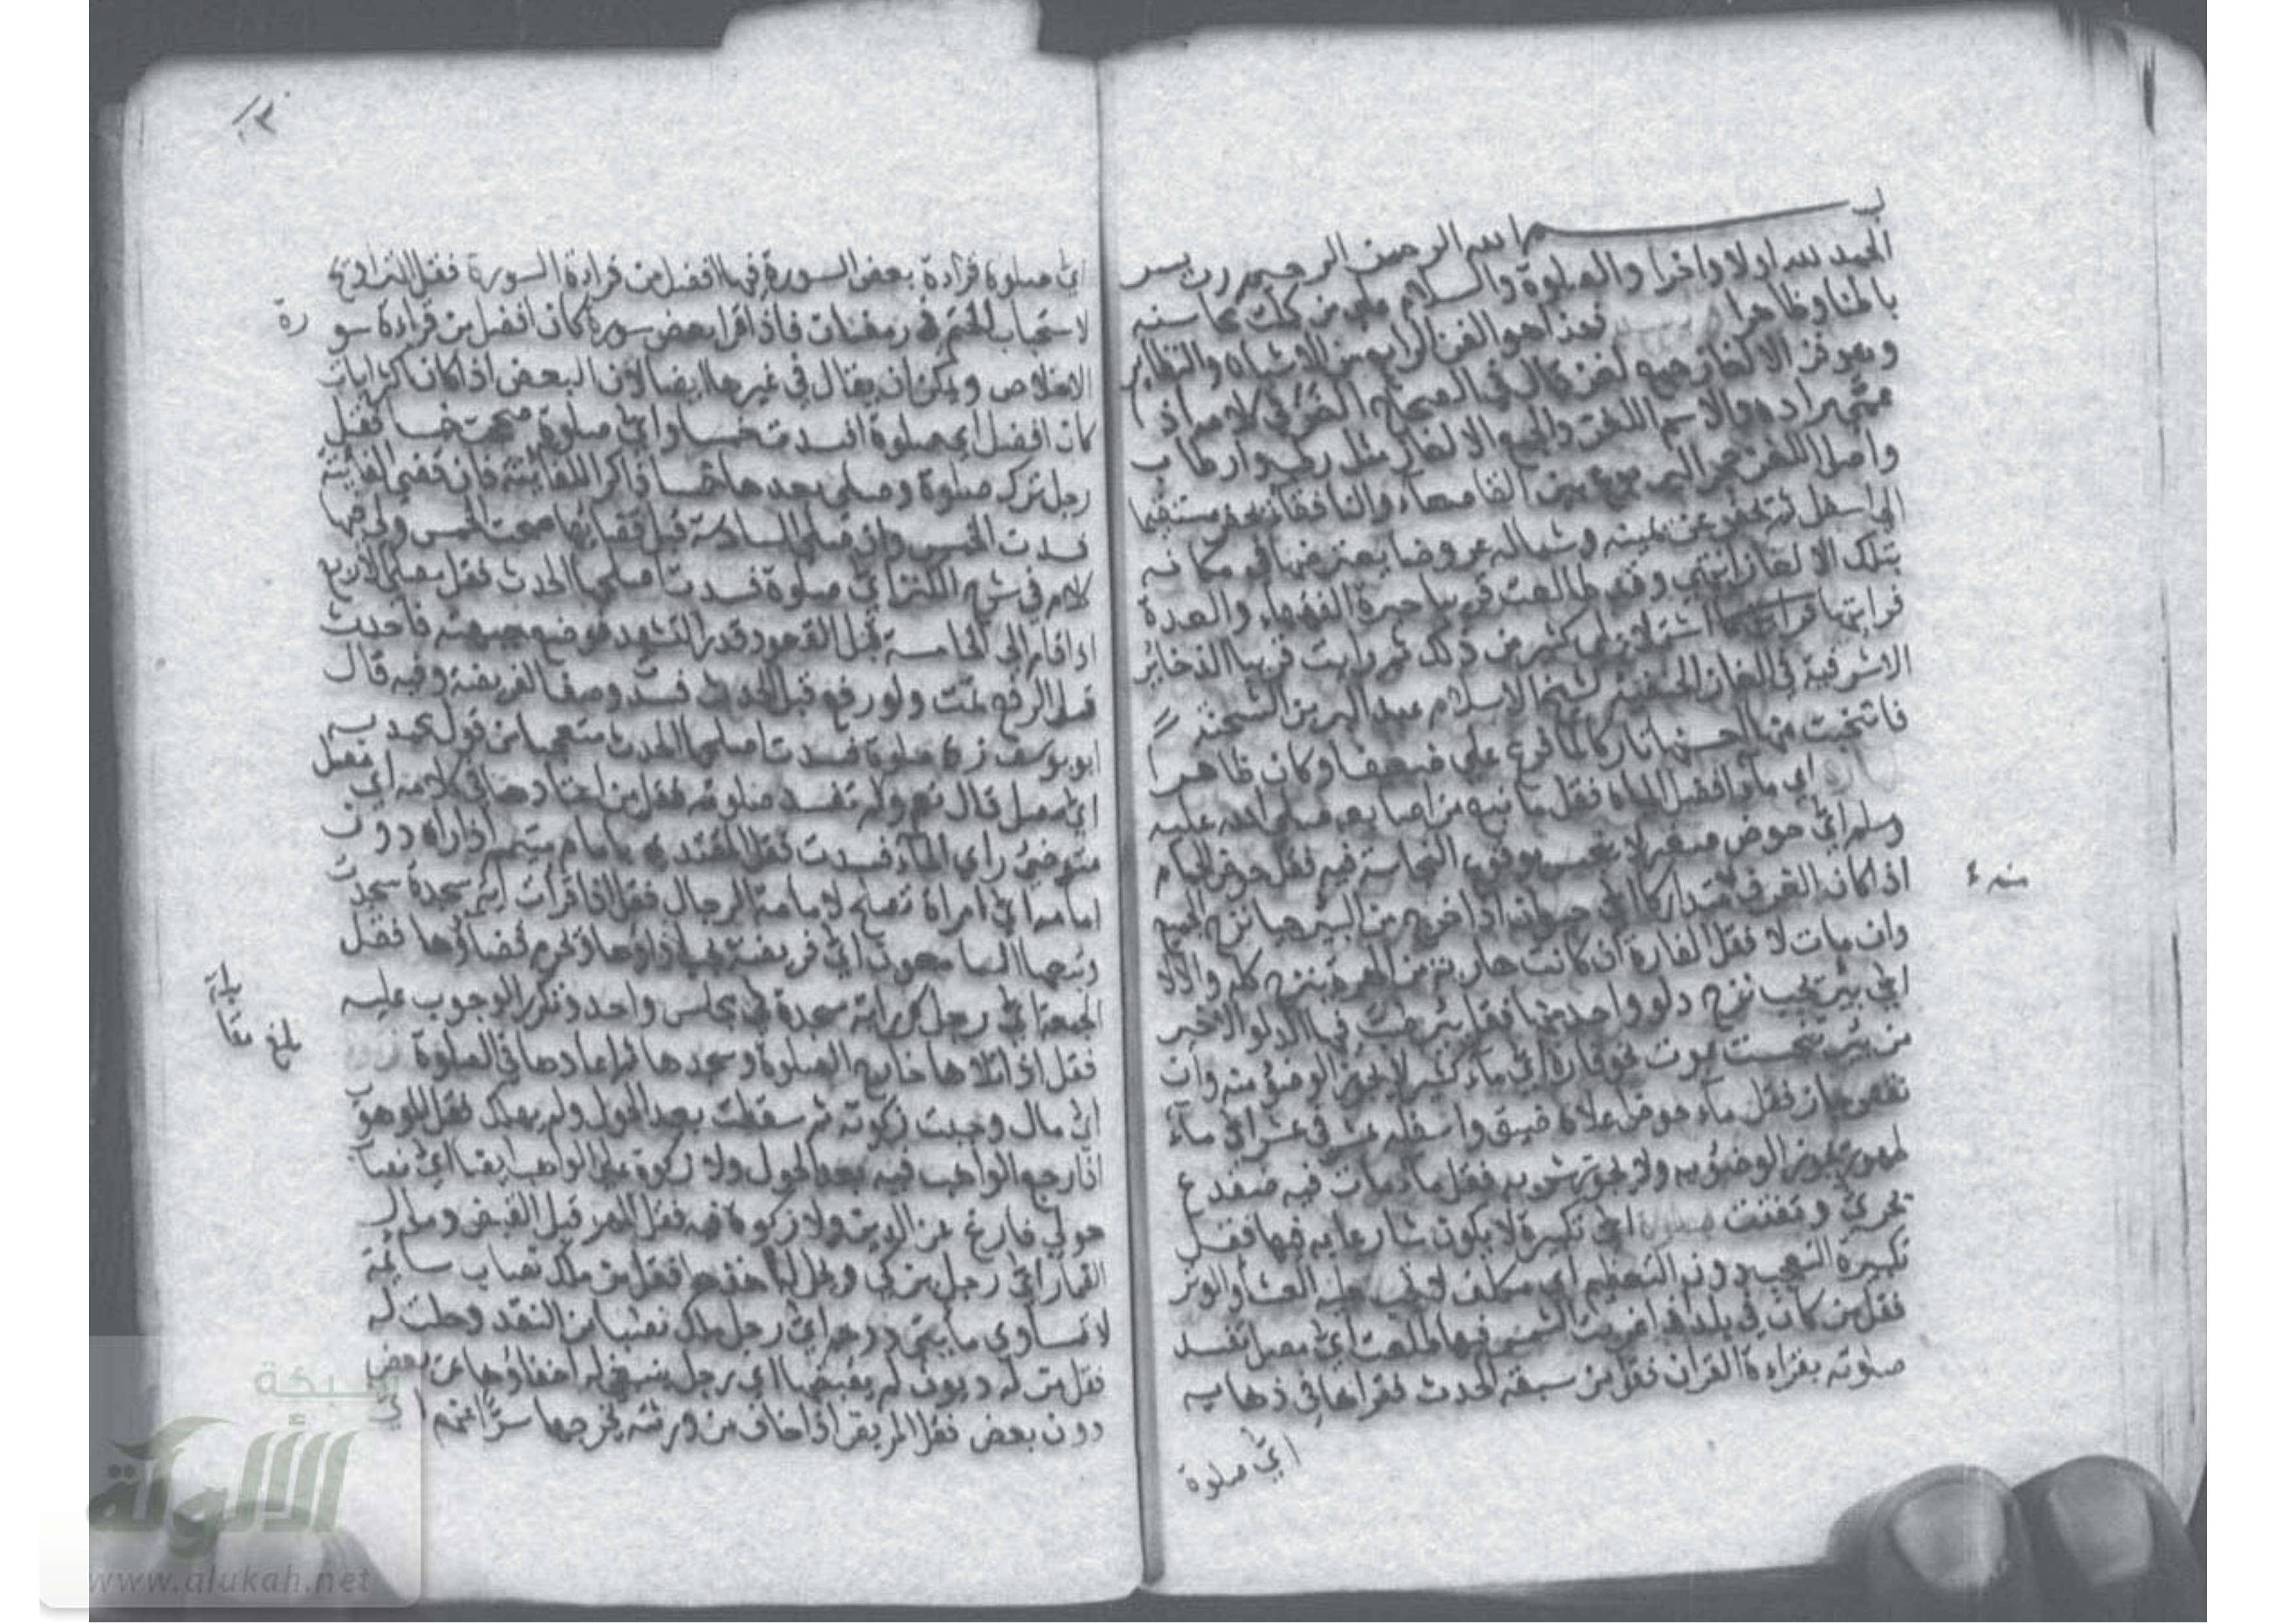 بسم الله الرحمن الرحيم رب يسر
الحمد لله اولا واخرا والصلوة والسلام على من كملت محاسنه
باطنا وظاهرا فهذا هو الفن الرابع من الاشباه والنظاير
وهو فن الالغاز جمع لغز قال في الصحاح الغز في كلامه اذا
عمى مراده والاسم اللغز والجمع الالغاز مثل رطب وارطاب
واصل اللغز جحر اليربوع بين القاصعاء والنافقاء يحفر مستقيما
الى اسفل ثم يحفر عن يمينه وشماله عروضا يعترضها فيخفى مكانه
بتلك الالغاز انتهى وقد طالعت قريبا حيرة الفقهاء والعدة
فرايتهما اشتملا على كثير من ذلك ثم رايت قريبا الذخائر
الاشرفية في الغاز الحنفية لشيخ الاسلام عبد البر بن الشحنة
فانتخبت منها احسنها تاركا لما فرع على ضعف او كان ظاهرا
اي ماء افضل المياه فقل ما نبع من اصابعه صلى الله عليه
وسلم اي حوض صغير لا يتنجس بوقوع النجاسة فيه فقل حوض الحمام
اذا كان الغرف متداركا اي حيوان اذا خرج من البير حيا نزح الجميع
وان مات لا فقل الفارة ان كانت هاربة من الهرة ينزح كله والا لا
اي بير يجب نزح دلو واحد منها فقل بئر صب فيها الدلو الاخير
من بئر تنجست بموت نحو فارة اي ماء كثير لا يجوز الوضؤ منه وان
نقص جاز فقل ماء حوض اعلاه ضيق واسفله عشر في عشر اي ماء
طهور يجوز الوضؤ به ولا يجوز شربه فقل ماء مات فيه ضفدع
بحري وتفتت اي تكبيرة لا يكون شارعا به فيها فقل
تكبيرة التعجب دون التعظيم اي مكلف لا يجب عليه العشاء والوتر
فقل من كان في بلد اذا غربت الشمس فيها طلعت اي مصل تفسد
صلوته بقراءة القران فقل من سبقه الحدث فقراها في ذهابه
اي صلوة
منه ٤
اي صلوة قراءة بعض السورة فيها افضل من قراءة السورة فقل التراويح
لاستحباب الختم في رمضان فاذا قرا بعض سورة كان افضل من قراءة سو
رة
الاخلاص ويمكن ان يقال في غيرها ايضا لان البعض اذا كان اكثر ايات
كان افضل اي صلوة افسدت خمسا واي صلوة صححت خمسا فقل
رجل ترك صلوة وصلى بعدها خمسا ذاكرا للفايتة فان قضى الفايتة
فسدت الخمس وان صلى السادسة قبل قضائها صحت الخمس ولي فيها
كلام في شرح الكنز اي صلوة فسدت اصلحها الحدث فقل مصلى الاربع
اذا قام الى الخامسة قبل القعود قدر التشهد فوضع جبهته فاحدث
قبل الرفع تمت ولو رفع قبل الحدث فسد وصف الفريضة وفيه قال
ابو يوسف زه صلوة فسدت اصلحها الحدث متعجبا من قول محمد
اي مصل قال نعم ولم تفسد صلوته فقل من اعتادها في كلامه اي مصل
متوضئ راى الماء فسدت فقل المقتدي بامام متيمم اذا راه دون
امامه اي امراة تصلح لامامة الرجال فقل اذا قرات اية سجدة سجدت
وتبعها السامعون اي فريضة يجب اداؤها ويحرم قضاؤها فقل
الجمعة اي رجل كرر اية سجدة في مجلس واحد وتكرر الوجوب عليه
فقل اذا تلاها خارج الصلوة وسجدها ثم اعادها في الصلوة
بلغ مقابلة
اي مال وجبت زكوته ثم سقطت بعد الحول ولم يهلك فقل الموهوب
اذا رجع الواهب فيه بعد الحول ولا زكوة على الواهب ايضا اي نصاب
حولي فارغ عن الدين ولا زكوة فيه فقل المهر قبل القبض ومال
الضمار اي رجل يزكي ويحل له اخذها فقل من ملك نصاب سائمة
لا تساوي مايتي درهم اي رجل ملك نصابا من النقد وحلت له
فقل من له ديون لم يقبضها اي رجل ينبغي له اخفاؤها عن بعض
دون بعض فقل المريض اذا خاف من ورثته يخرجها سرا عنهم اي
شبكة
الألوكة
www.alukah.net